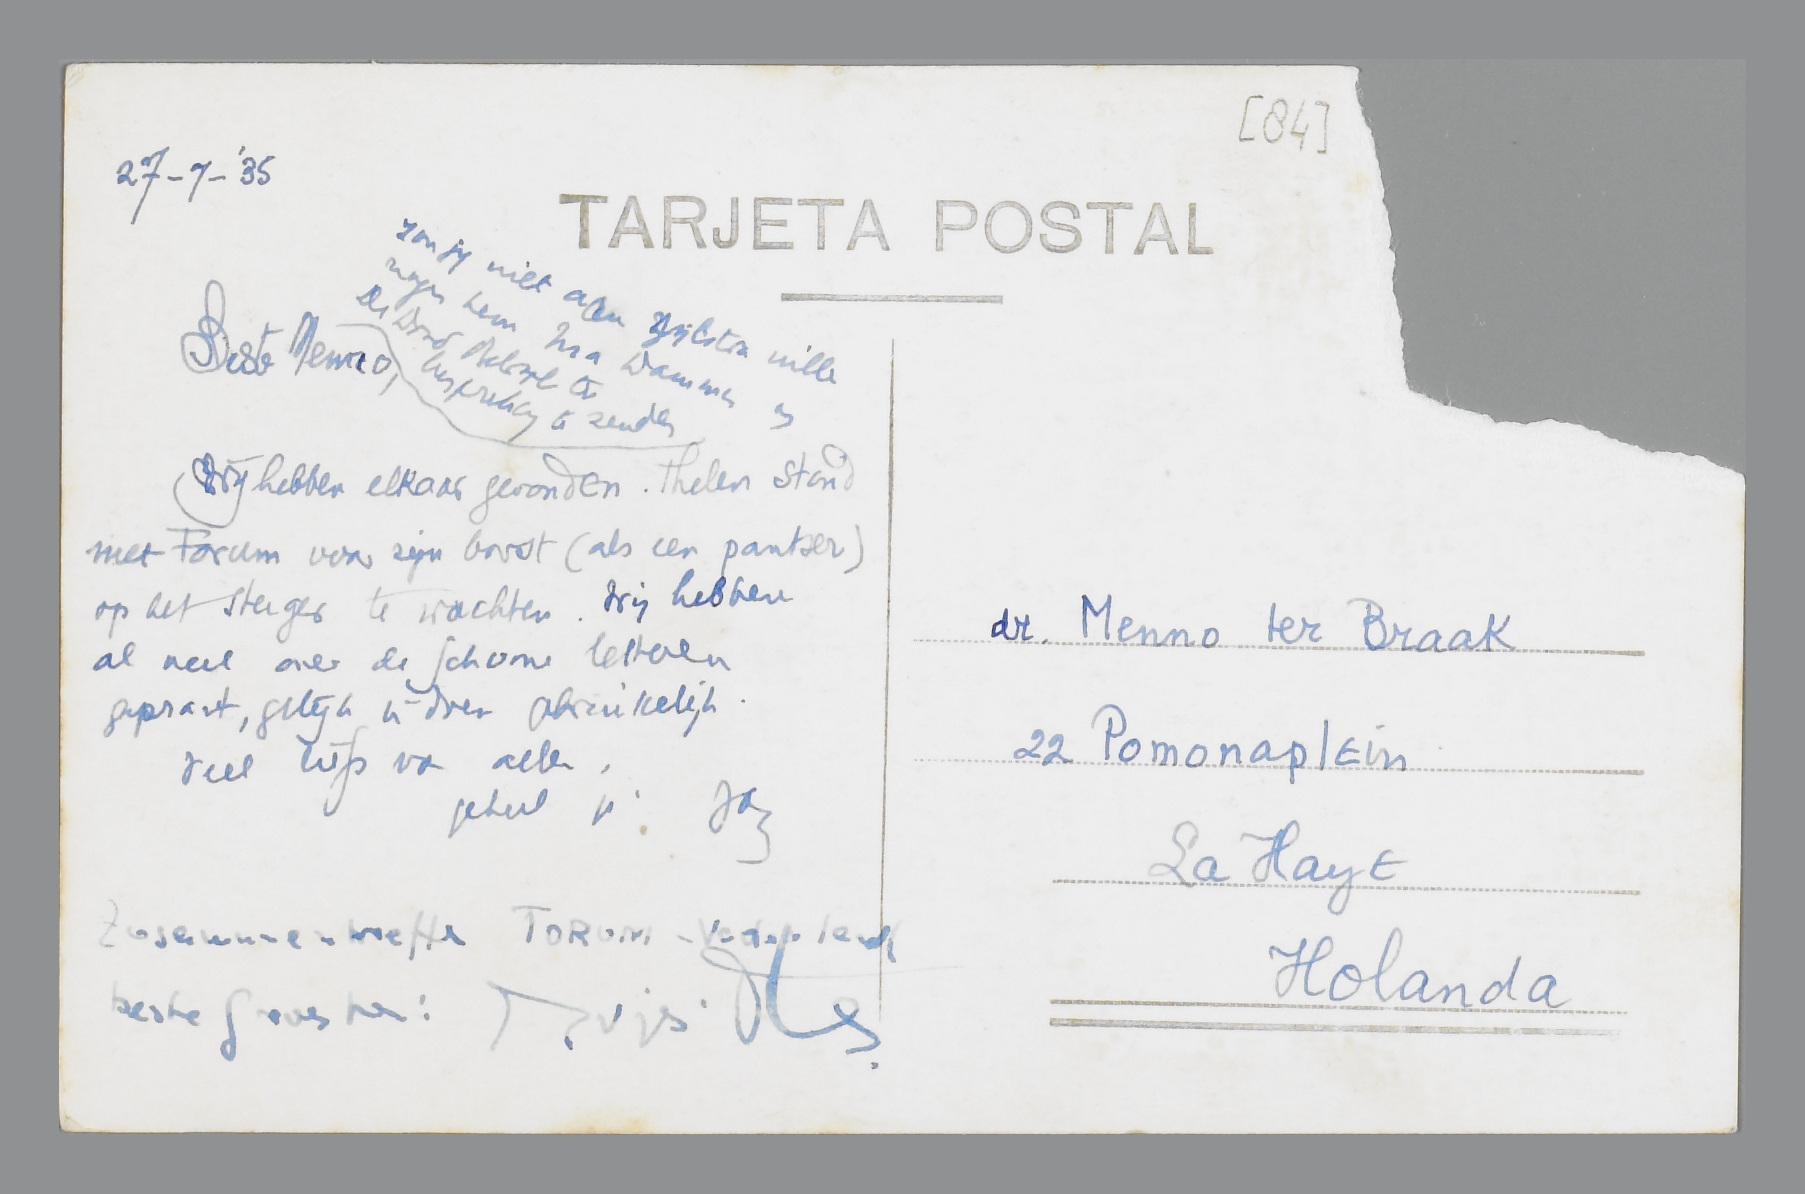 [84]
27-7-'35
TARJETA POSTAL
zou jij niet aan Zijlstra wille
vragen hem
te zenden
Beste Menno,
Wij hebben elkaar gevonden. Thelen stond
met Forum voor zijn borst (als een pantser)
op het steiger te wachten. Wij hebben
al veel over de schone letteren
gepraat, gelijk
Veel liefs van allen,
geheel je Jan
Zusammentreffen FORUM-Vaderland
beste
dr. Menno ter Braak
22 Pomonaplein
La Haye
Holanda